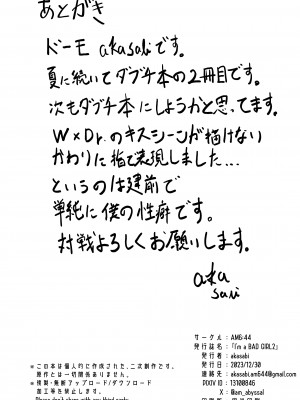 あとがき
ドーモ akasabiです。
夏に続いてダブチ本の2冊目です。
次もダブチ本にしようかと思ってます。
W×Dr.のキスシーンが描けない
かわりに指で表現しました…
というのは建前で
単純に僕の性癖です。
対戦よろしくお願いします。
aka
sabi
サークル：AM6:44
発行誌名：『I'm a BAD GIRL2』
発行者：akasabi
発行日：2023/12/30
連絡先：akasabi.am644@gmail.com
PIXIV ID：13100846
X：@am_abyssal
※この本は個人的に作成された、二次創作です。
原作とは一切関係ありません。
※複製・無断アップロード/ダウンロード
加工等を禁止します。